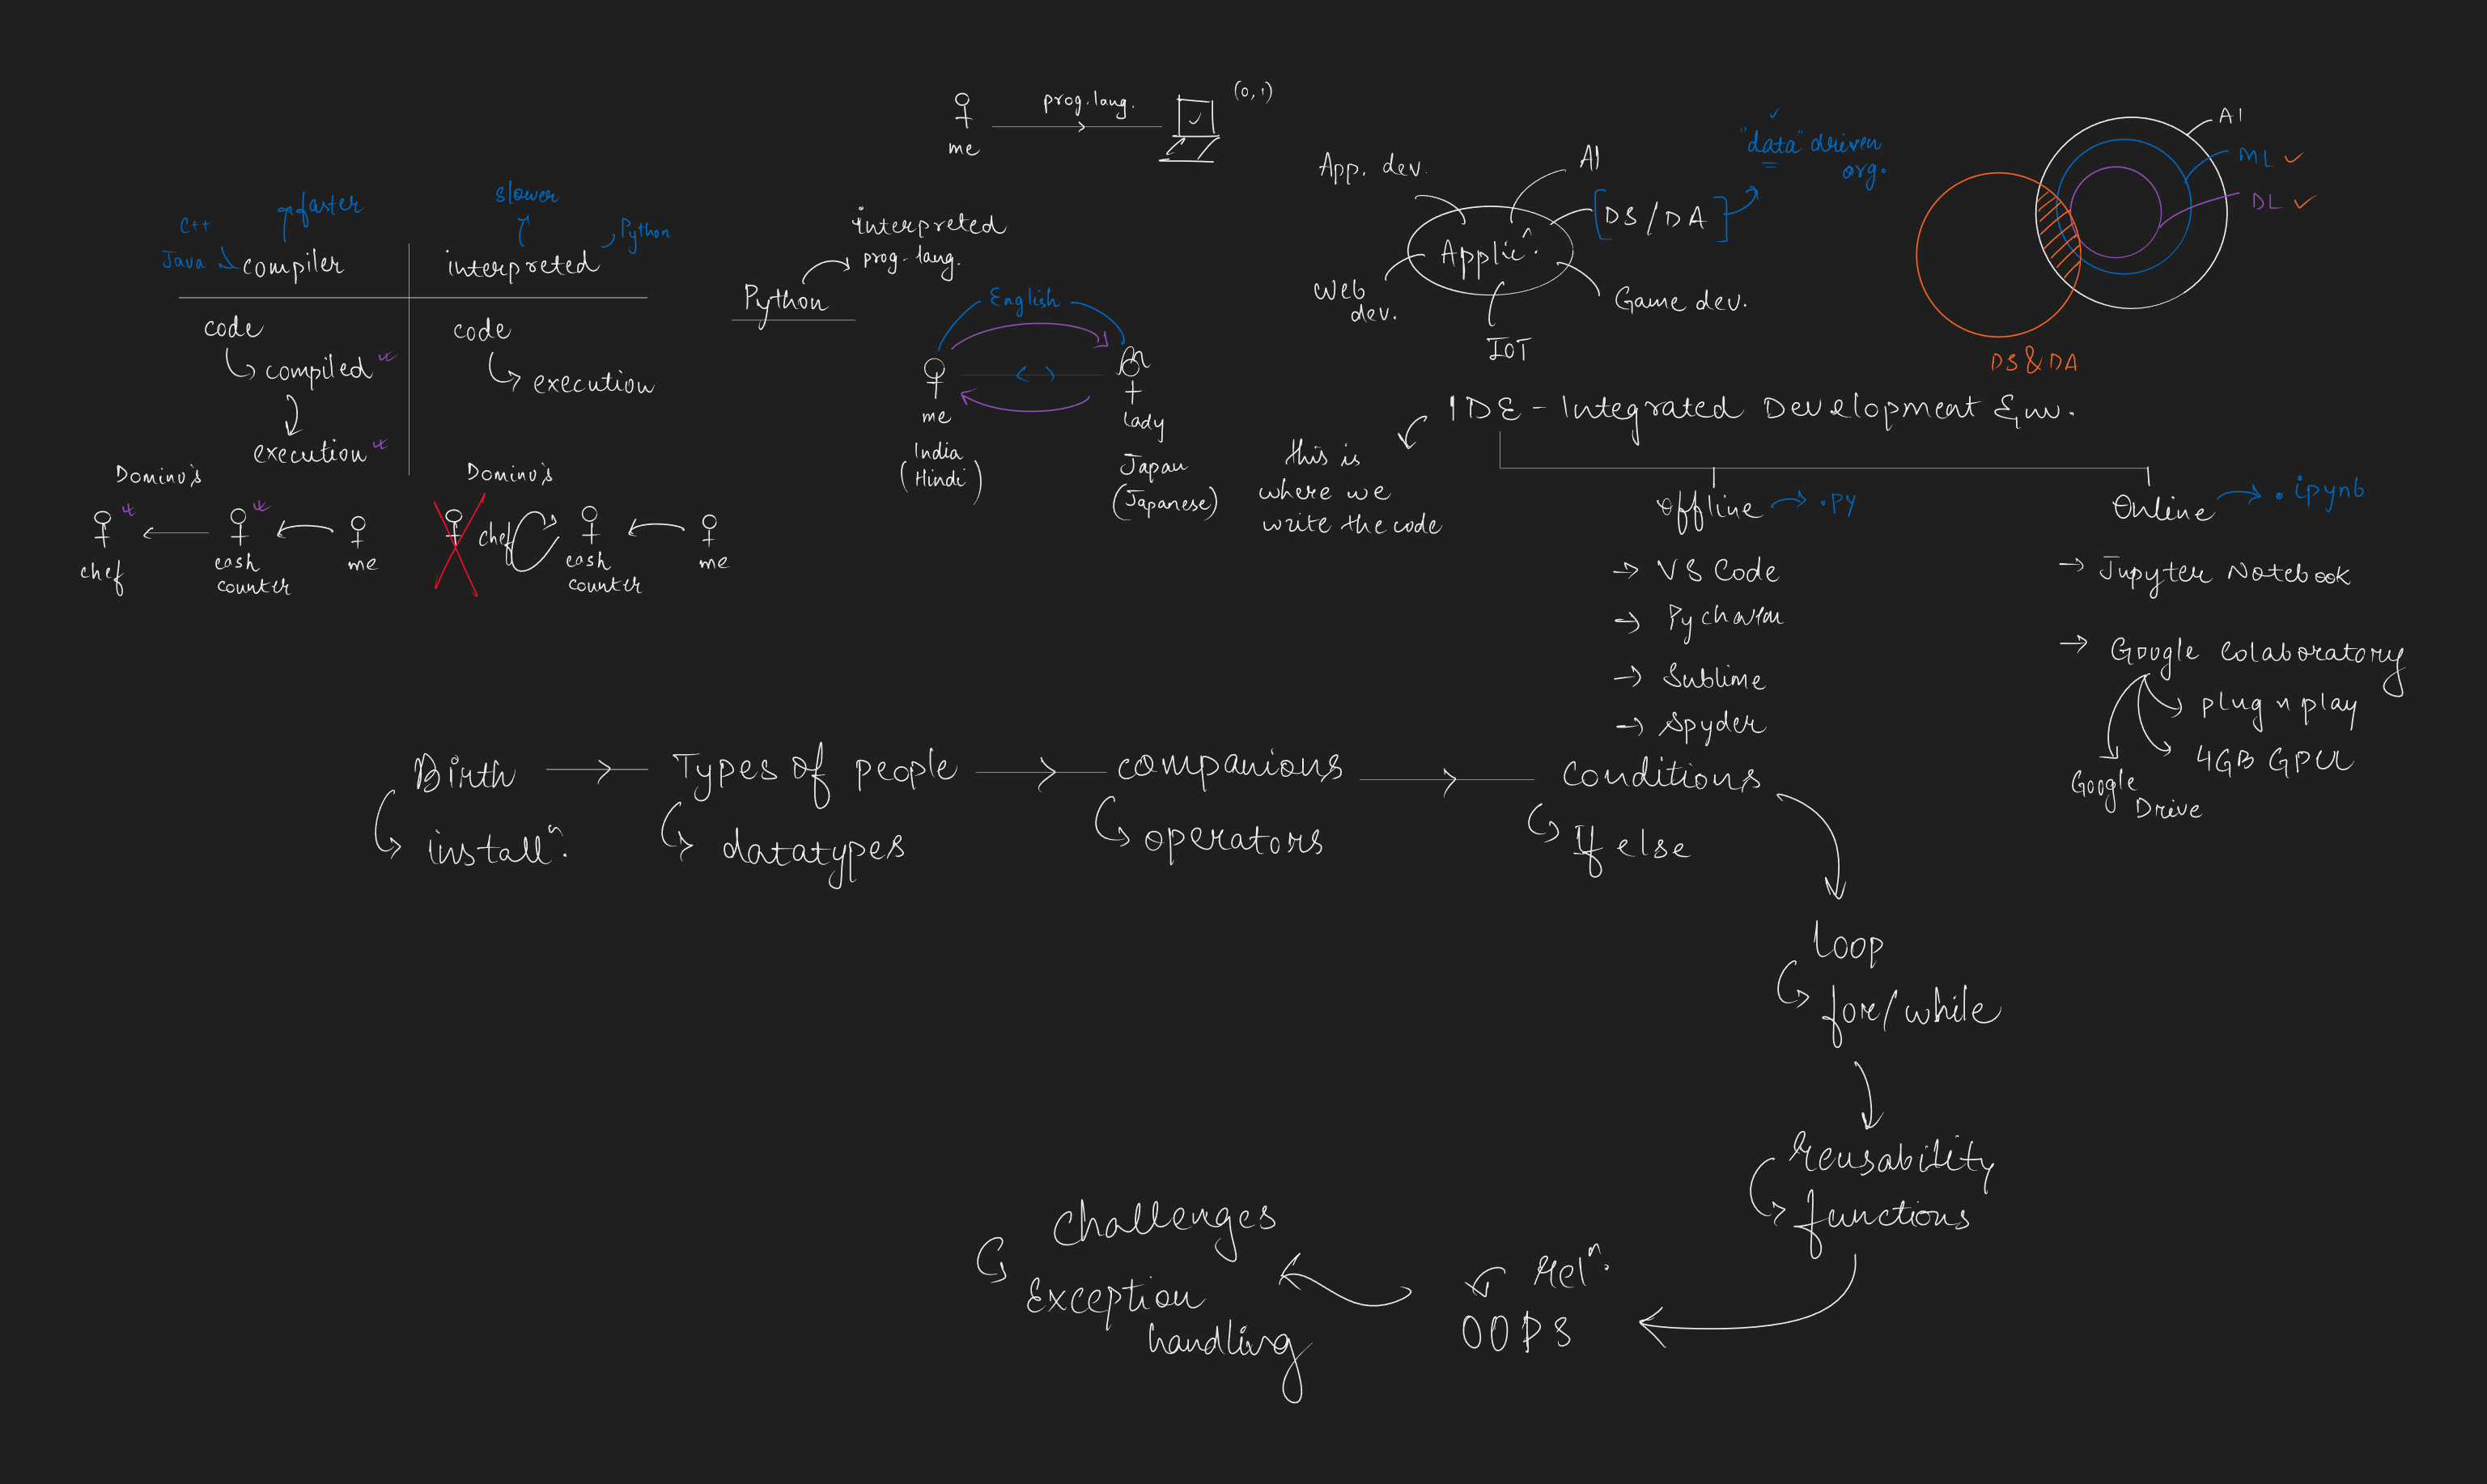 me
prog. lang.
(0,1)
C++
Java
faster
compiler
slower
interpreted
Python
code
compiled
execution
code
execution
Domino's
chef
cash
counter
me
Domino's
chef
cash
counter
me
Python
interpreted
prog. lang.
English
me
India
(Hindi)
lady
Japan
(Japanese)
Applicⁿ.
App. dev.
AI
[DS/DA]
"data" driven
org.
Web
dev.
IOT
Game dev.
AI
ML
DL
DS&DA
IDE - Integrated Development Env.
this is
where we
write the code
offline
.py
→ VS Code
→ Pycharm
→ Sublime
→ Spyder
Online
.ipynb
→ Jupyter Notebook
→ Google Colaboratory
plug n play
4GB GPU
Google
Drive
Birth
installⁿ.
Types of people
datatypes
companions
operators
conditions
If else
loop
for/while
reusability
functions
relⁿ.
OOPS
challenges
Exception
handling